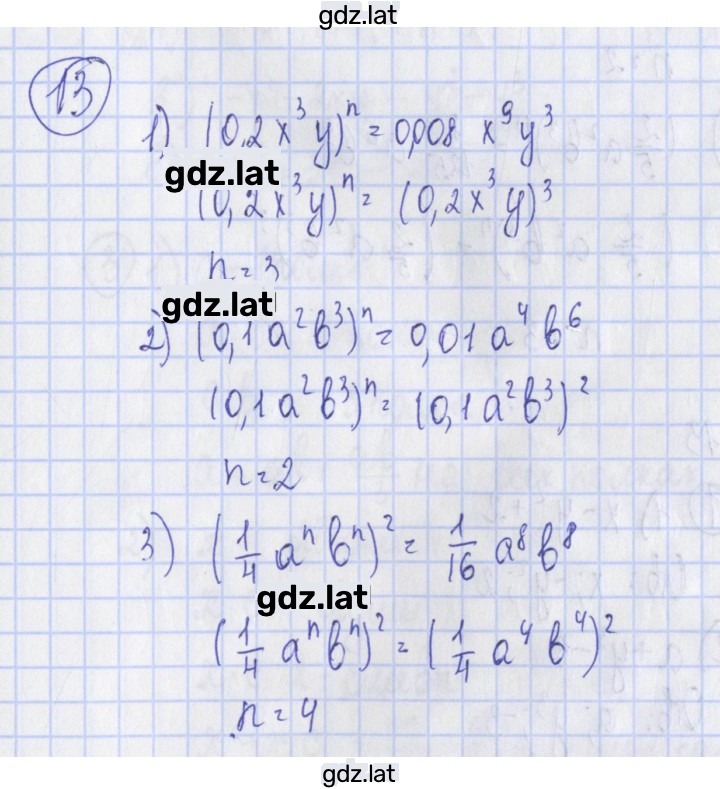 gdz.lat
13
1) (0.2x³y)ⁿ = 0,008 x⁹y³
gdz.lat
(0,2x³y)ⁿ = (0,2x³y)³
n = 3
gdz.lat
2) (0,1a²b³)ⁿ = 0,01a⁴b⁶
(0,1a²b³)ⁿ = (0,1a²b³)²
n = 2
3) (1/4 aⁿbⁿ)² = 1/16 a⁸b⁸
gdz.lat
(1/4 aⁿbⁿ)² = (1/4 a⁴b⁴)²
n = 4
gdz.lat